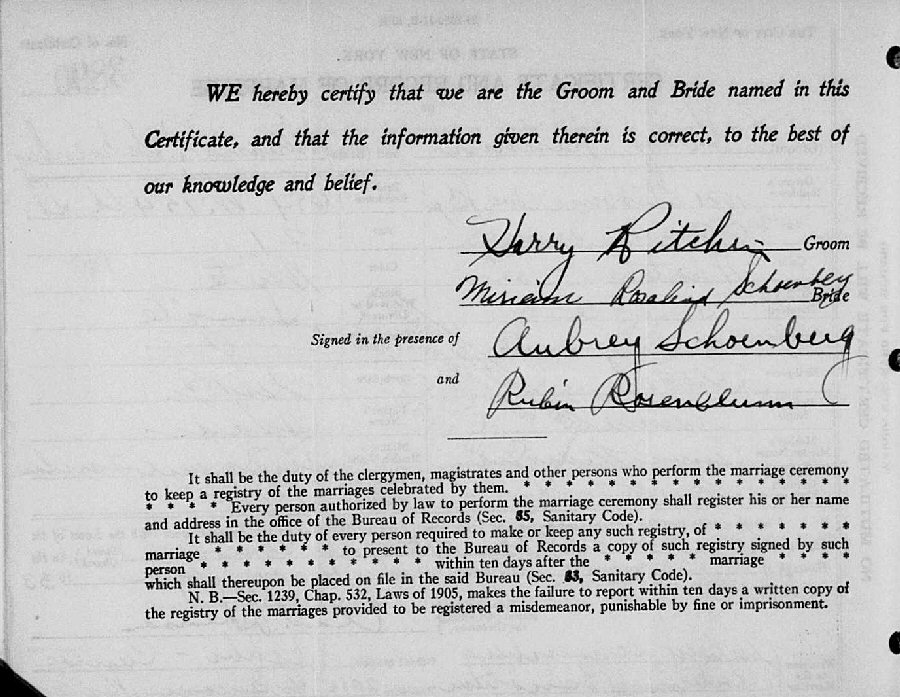 WE hereby certify that we are the Groom and Bride named in this
Certificate, and that the information given therein is correct, to the best of
our knowledge and belief.
Harry Ritchin Groom
Miriam Rosalind Schoenberg Bride
Signed in the presence of Aubrey Schoenberg
and Rubin Rosenblum
It shall be the duty of the clergymen, magistrates and other persons who perform the marriage ceremony
to keep a registry of the marriages celebrated by them. * * * * * * * * * * * * * *
* * * * Every person authorized by law to perform the marriage ceremony shall register his or her name
and address in the office of the Bureau of Records (Sec. 85, Sanitary Code).
It shall be the duty of every person required to make or keep any such registry, of * * * * * * *
marriage * * * * * * to present to the Bureau of Records a copy of such registry signed by such
person * * * * * * * * * * * within ten days after the * * * * * marriage * * * *
which shall thereupon be placed on file in the said Bureau (Sec. 83, Sanitary Code).
N. B.—Sec. 1239, Chap. 532, Laws of 1905, makes the failure to report within ten days a written copy of
the registry of the marriages provided to be registered a misdemeanor, punishable by fine or imprisonment.